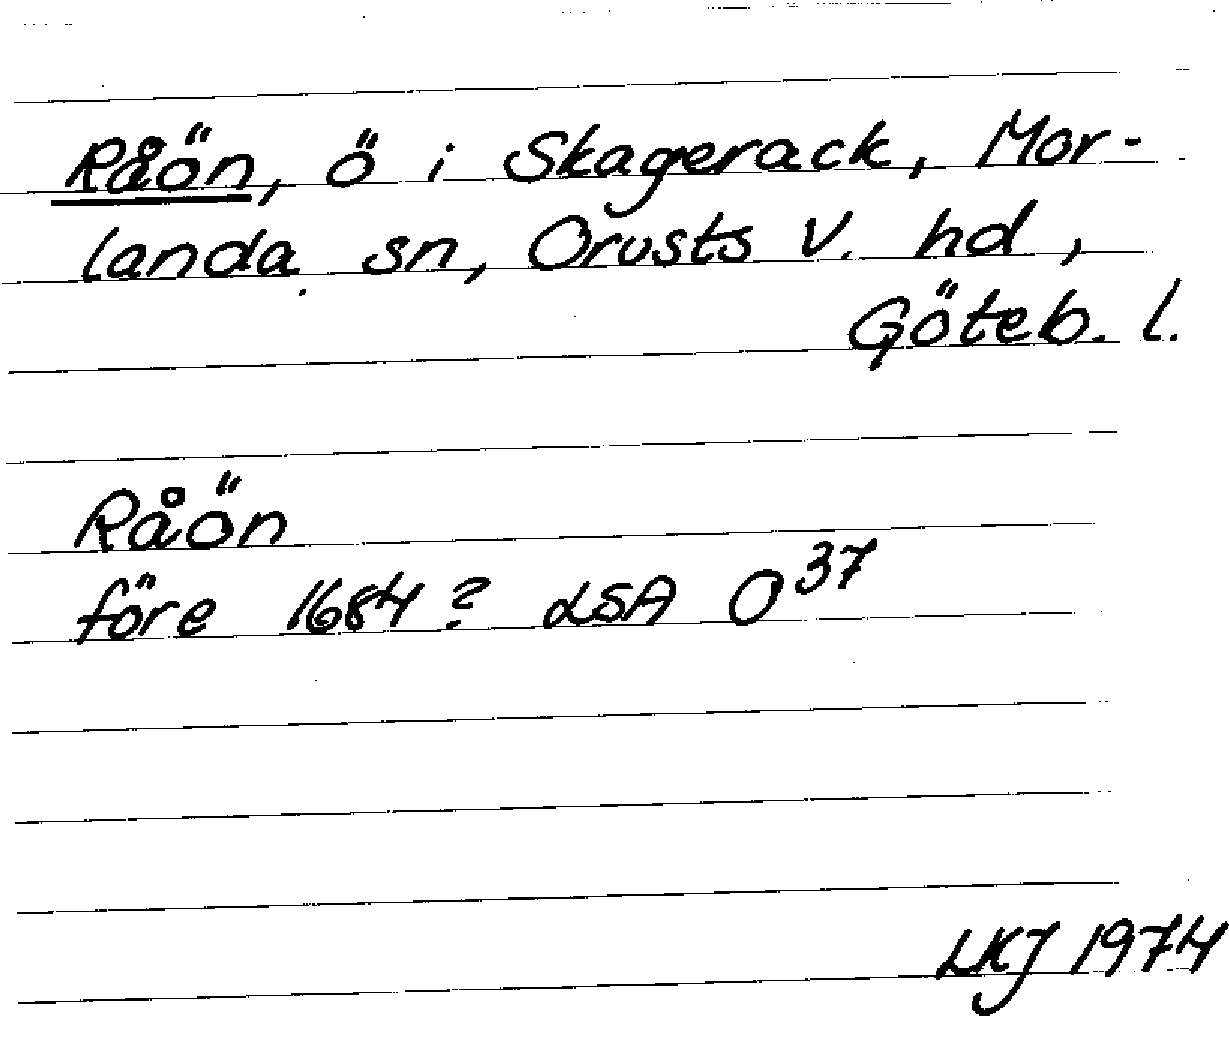 Råön, ö i Skagerack, Mor-
landa sn, Orusts V. hd,
Göteb. l.
Råön
före 1684? LSA O37
LKJ 1974